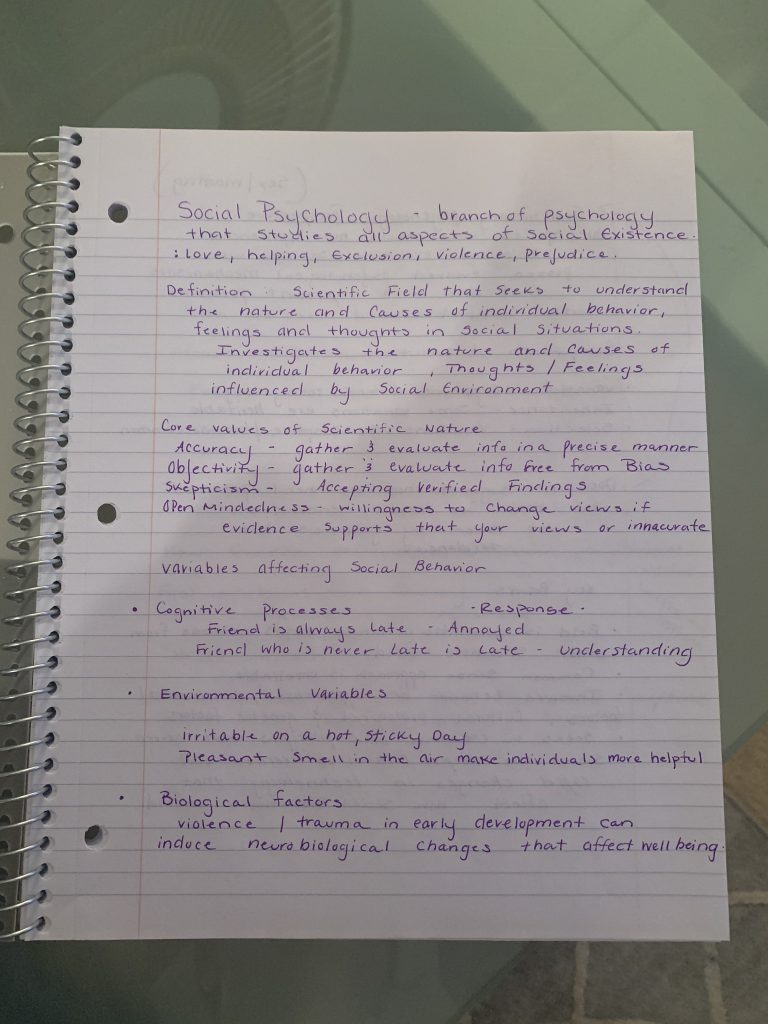 Social Psychology - branch of psychology
that studies all aspects of social Existence.
: Love, helping, Exclusion, violence, prejudice.
Definition . Scientific Field that seeks to understand
the nature and causes of individual behavior,
feelings and thoughts in social situations.
Investigates the nature and causes of
individual behavior , Thoughts / Feelings
influenced by social Environment
Core values of Scientific Nature
Accuracy - gather & evaluate info in a precise manner
Objectivity - gather & evaluate info free from Bias
Skepticism - Accepting verified Findings
Open Mindedness - willingness to change views if
evidence supports that your views or innacurate
variables affecting Social Behavior
• Cognitive Processes - Response -
Friend is always Late - Annoyed
Friend who is never Late is Late - understanding
• Environmental variables
irritable on a hot, sticky Day
Pleasant smell in the air make individuals more helpful
• Biological factors
violence / trauma in early development can
induce neurobiological changes that affect well being.